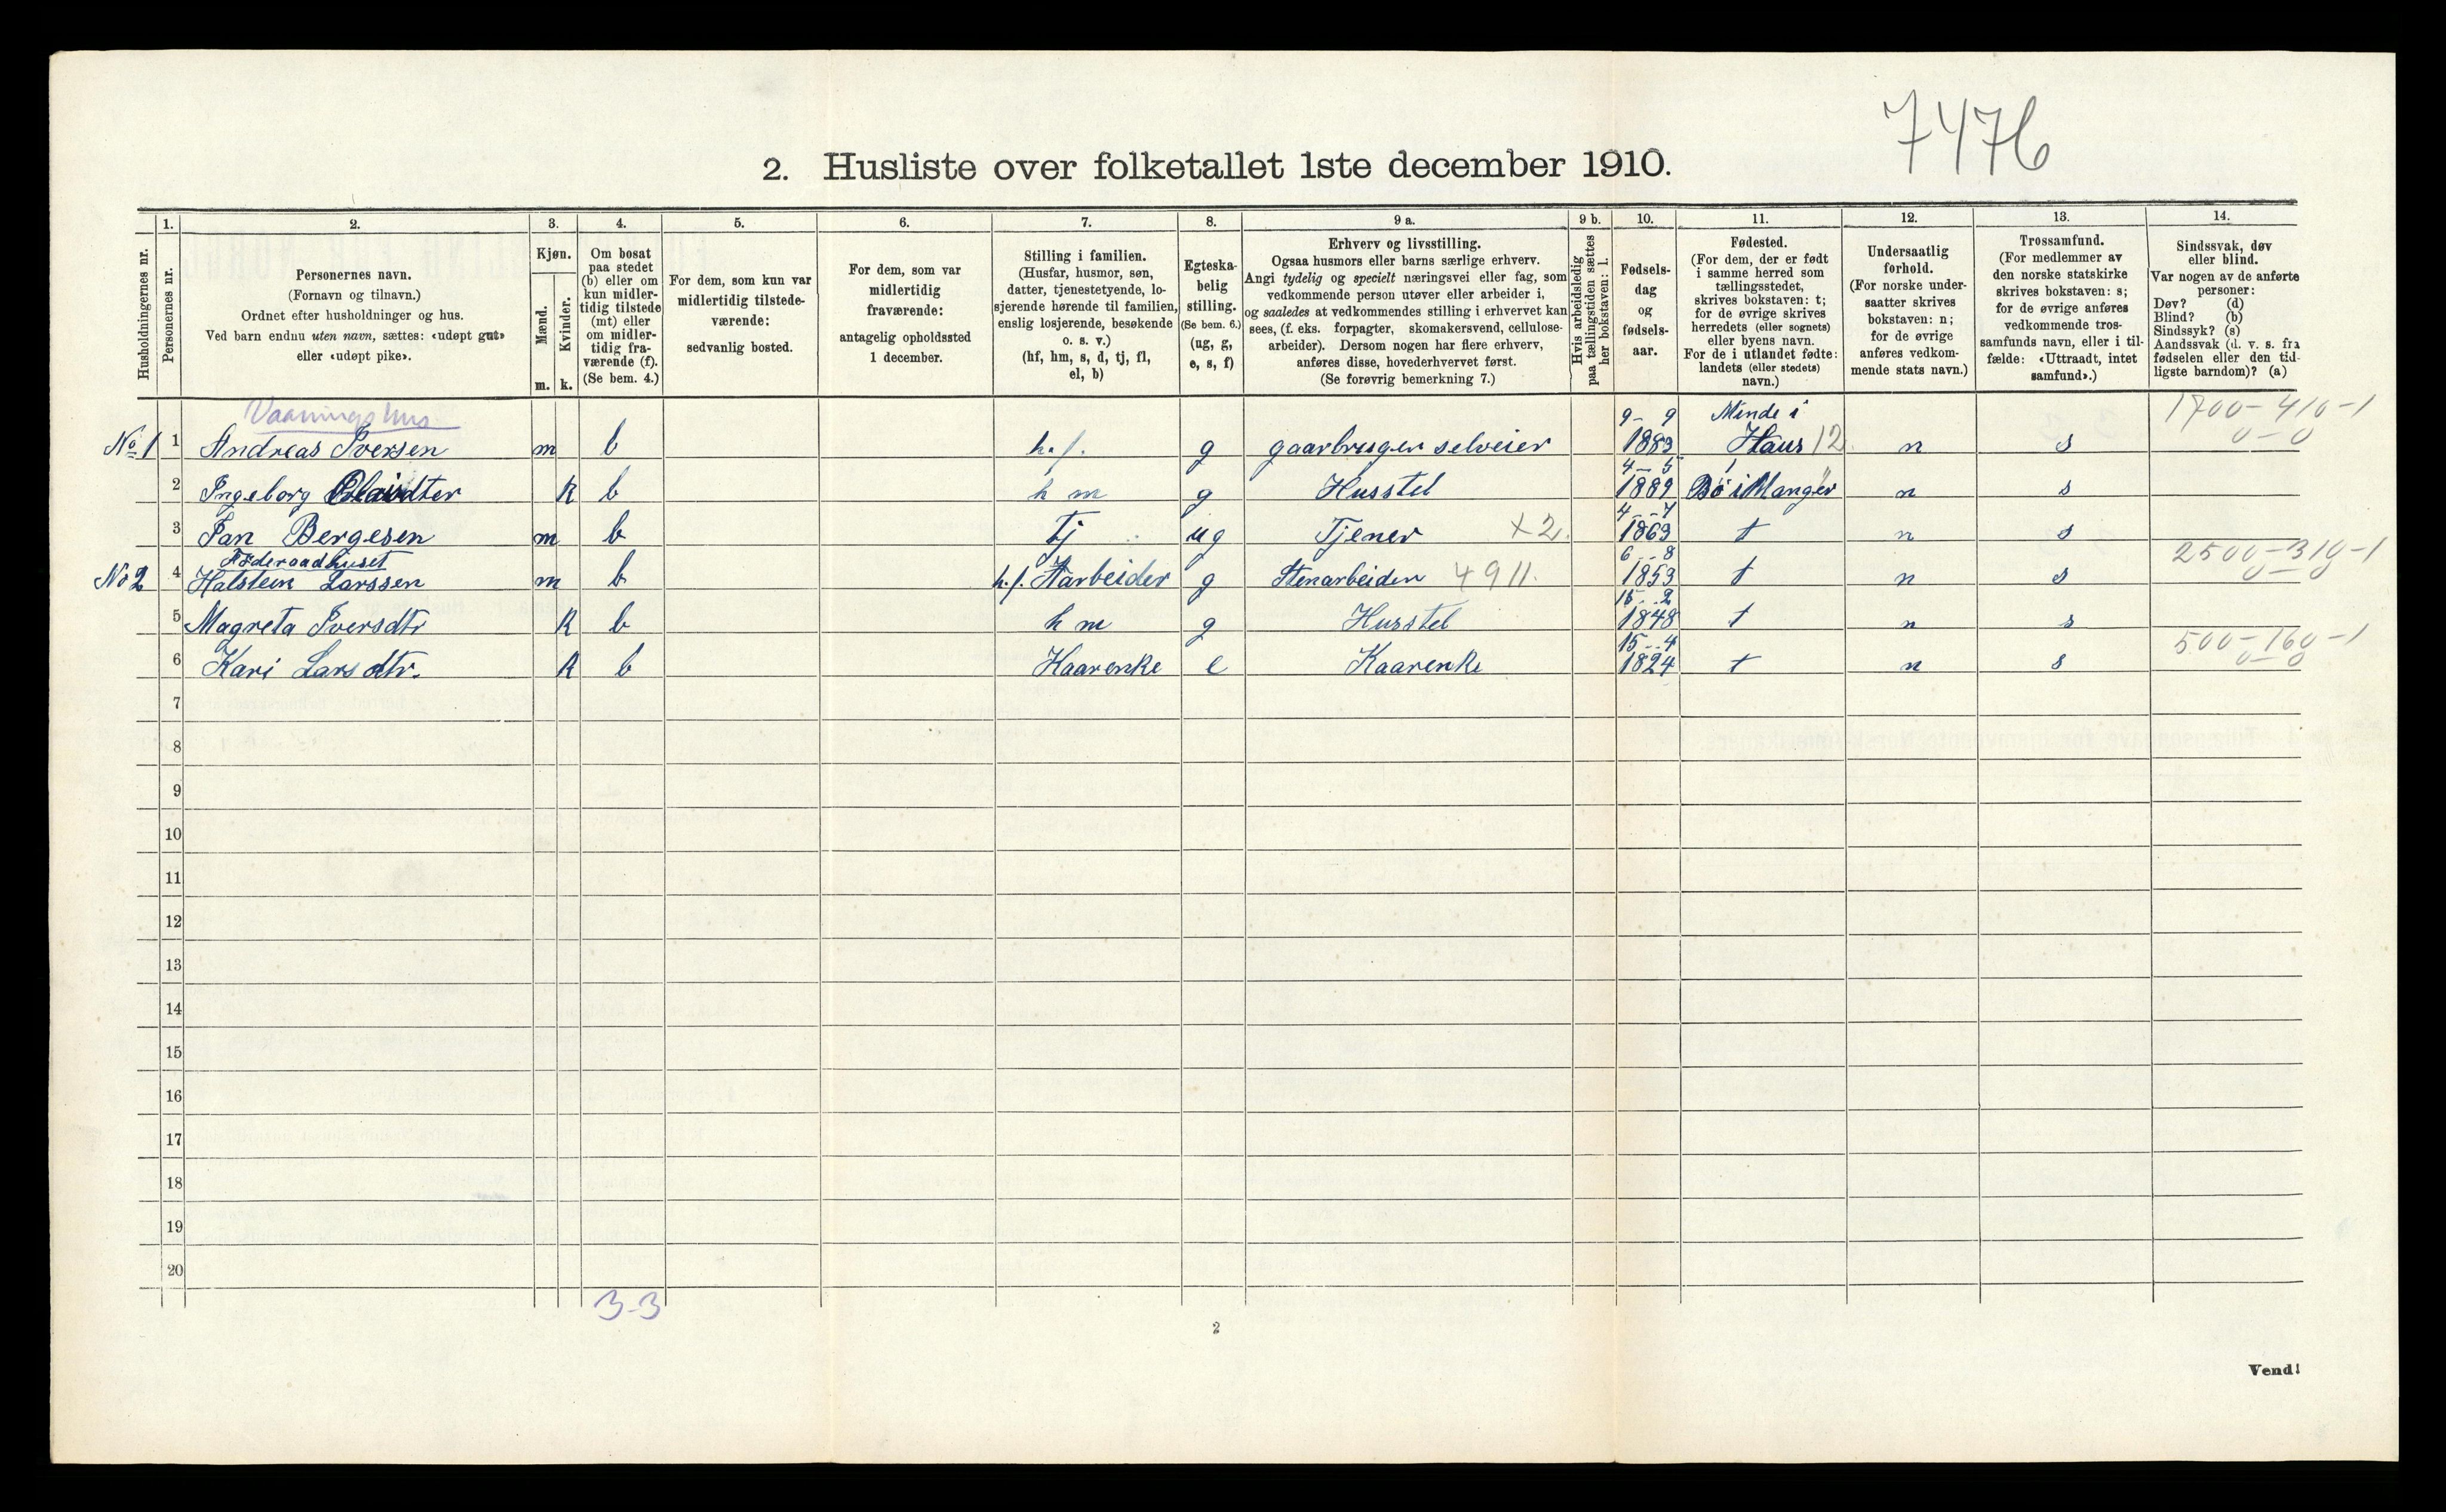 7476
2. Husliste over folketallet 1ste december 1910.
Husholdningernes nr.
1.
Personernes nr.
2.
Personernes navn.
(Fornavn og tilnavn.)
Ordnet efter husholdninger og hus.
Ved barn endnu uten navn, sættes: «udøpt gut»
eller «udøpt pike».
3.
Kjøn.
Mænd.
m.
Kvinder.
k.
4.
Om bosat
paa stedet
(b) eller om
kun midler-
tidig tilstede
(mt) eller
om midler-
tidig fra-
værende (f).
(Se bem. 4.)
5.
For dem, som kun var
midlertidig tilstede-
værende:
sedvanlig bosted.
6.
For dem, som var
midlertidig
fraværende:
antagelig opholdssted
1 december.
7.
Stilling i familien.
(Husfar, husmor, søn,
datter, tjenestetyende, lo-
sjerende hørende til familien,
enslig losjerende, besøkende
o. s. v.)
(hf, hm, s, d, tj, fl,
el, b)
8.
Egteska-
belig
stilling.
(Se bem. 6.)
(ug, g,
e, s, f)
9 a.
Erhverv og livsstilling.
Ogsaa husmors eller barns særlige erhverv.
Angi tydelig og specielt næringsvei eller fag, som
vedkommende person utøver eller arbeider i,
og saaledes at vedkommendes stilling i erhvervet kan
sees, (f. eks. forpagter, skomakersvend, cellulose-
arbeider). Dersom nogen har flere erhverv,
anføres disse, hovederhvervet først.
(Se forøvrig bemerkning 7.)
9 b.
Hvis arbeidsledig
paa tællingstiden sættes
her bokstaven: l.
10.
Fødsels-
dag
og
fødsels-
aar.
11.
Fødested.
(For dem, der er født
i samme herred som
tællingsstedet,
skrives bokstaven: t;
for de øvrige skrives
herredets (eller sognets)
eller byens navn.
For de i utlandet fødte:
landets (eller stedets)
navn.)
12.
Undersaatlig
forhold.
(For norske under-
saatter skrives
bokstaven: n;
for de øvrige
anføres vedkom-
mende stats navn.)
13.
Trossamfund.
(For medlemmer av
den norske statskirke
skrives bokstaven: s;
for de øvrige anføres
vedkommende tros-
samfunds navn, eller i til-
fælde: «Uttraadt, intet
samfund».)
14.
Sindssvak, døv
eller blind.
Var nogen av de anførte
personer:
Døv? (d)
Blind? (b)
Sindssyk? (s)
Aandssvak (d. v. s. fra
fødselen eller den tid-
ligste barndom)? (a)
Vaaningshus 9 - 9 Minde i 1700-410-1
No 1 1 Andreas Iversen m b h.f. g gaarbruger selveier 1883 Haus 12 n s 0-0
4 - 5
2 Ingeborg k b h m g Husstel 1889 Bö i Manger n s
4 - 7
3 Jan Bergesen m b tj ug Tjener x2. 1863 t n s
Föderaadhuset 6 - 8 2500-310-1
No 2 4 Halstein Larssen m b h.f. g Stenarbeider 4911. 1853 t n s 0-0
15 - 2
5 Magreta Iversdtr k b h m g Husstel 1848 t n s
15 - 4 500-160-1
6 Kari Larsdtr. k b Kaarenke e Kaarenke 1824 t n s 0-0
7
8
9
10
11
12
13
14
15
16
17
18
19
20
3-3
2
Vend!